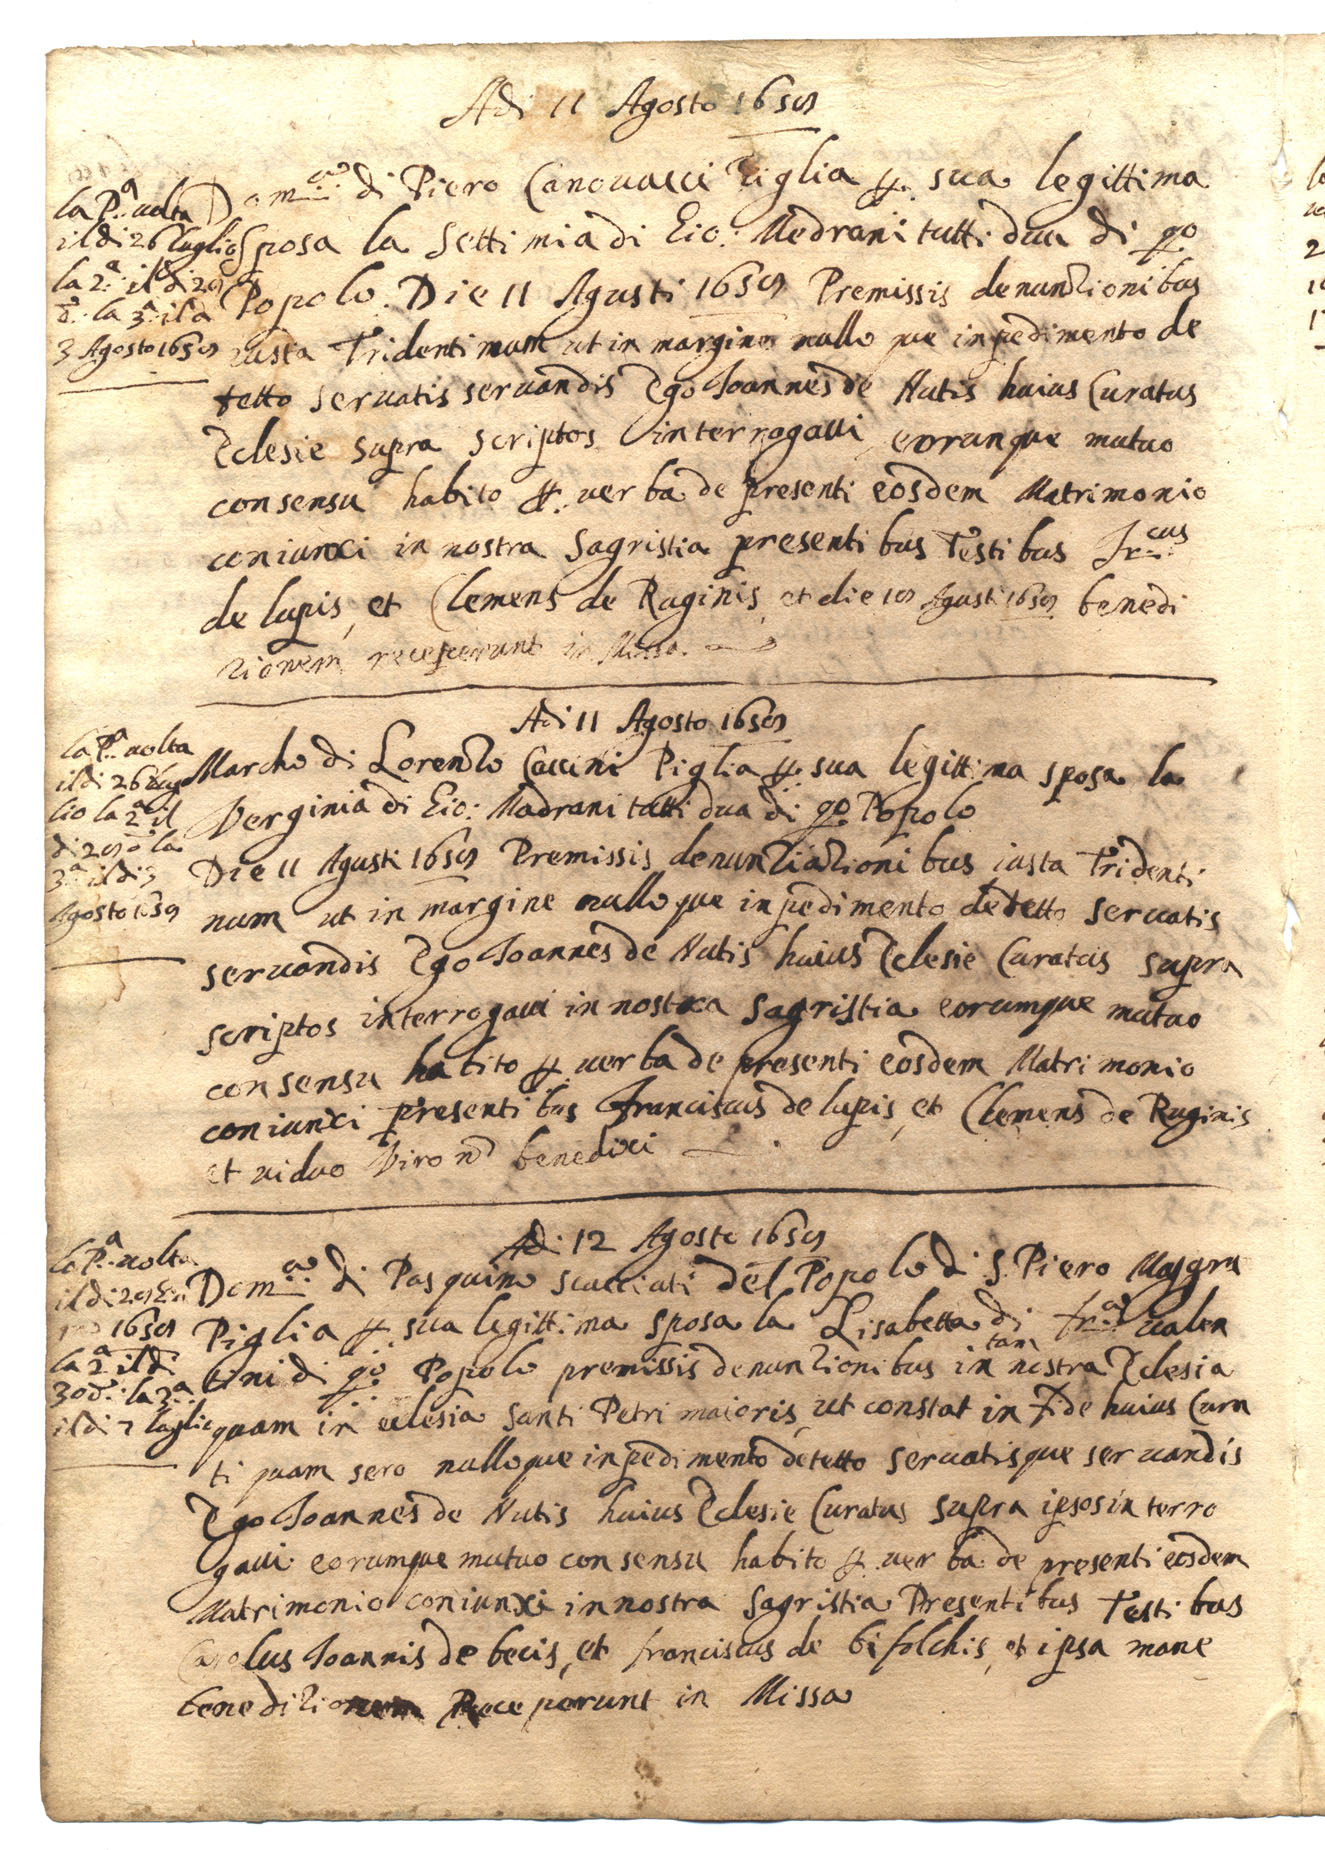 Adi 11 Agosto 1659
la P.a volta
il di 26 luglio
la 2.a il di 29
d.o la 3.a il di
3 Agosto 1659
Dom.co di Piero Canovacci Piglia p. sua legittima
Sposa la Settimia di Gio: Madrani tutti dua di qo
Popolo. Die 11 Agusti 1659 Premissis denunzionibus
iusta Tridentinum ut in margine nullo que inpedimento de
tetto servatis servandis Ego Joannes de Nutis huius Curatus
Eclesie supra scriptos interrogavi eorunque mutuo
consensu habito p. verba de presenti eosdem Matrimonio
coniunxi in nostra Sagristia presentibus Testibus Fr.cus
de lupis, et Clemens de Raginis, et die 10 Agusti 1659 benedi
zionem receperunt in Missa.
Adi 11 Agosto 1659
la P.a volta
il di 26 lug
lio la 2.a il
di 29 d.o la
3.a il di 3
Agosto 1659
Marcho di Lorenzo Caccini Piglia p. sua legittima sposa la
Verginia di Gio: Madrani tutti dua di qo. Popolo
Die 11 Agusti 1659 Premissis denunziazionibus iusta Tridenti
num ut in margine nulloque inpedimento detetto servatis
servandis Ego Joannes de Nutis huius Eclesie Curatus supra
scriptos interrogavi in nostra Sagristia eorumque mutuo
consensu habito p. verba de presenti eosdem Matrimonio
coniunxi presentibus Franciscus de lupis, et Clemens de Raginis
et viduo Viro nō benedixi
Adi 12 Agosto 1659
la P.a volta
il di 29 Giu
1659
la 2.a il di
30 d.o la 3.a
il di 7 luglio
Dom.co di Pasquino scacciati del Popolo di S. Piero Maggre
Piglia p. sua legittima sposa la Lisabetta di fr.co valen
tini di qo. Popolo premissis denunzionibus in nostra Eclesia
tam
quam in eclesia Santi Petri maioris, ut constat in fide huius Cura
ti quam sero nulloque inpedimento detetto servatisque servandis
Ego Joannes de Nutis huius Eclesie Curatus supra ipsos interro
gavi eorumque mutuo consensu habito p. verba de presenti eosdem
Matrimonio coniunxi in nostra Sagristia Presentibus Testibus
Carolus Joannis de becis, et franciscus de bifolchis, et ipsa mane
benedizionem Receperunt in Missa